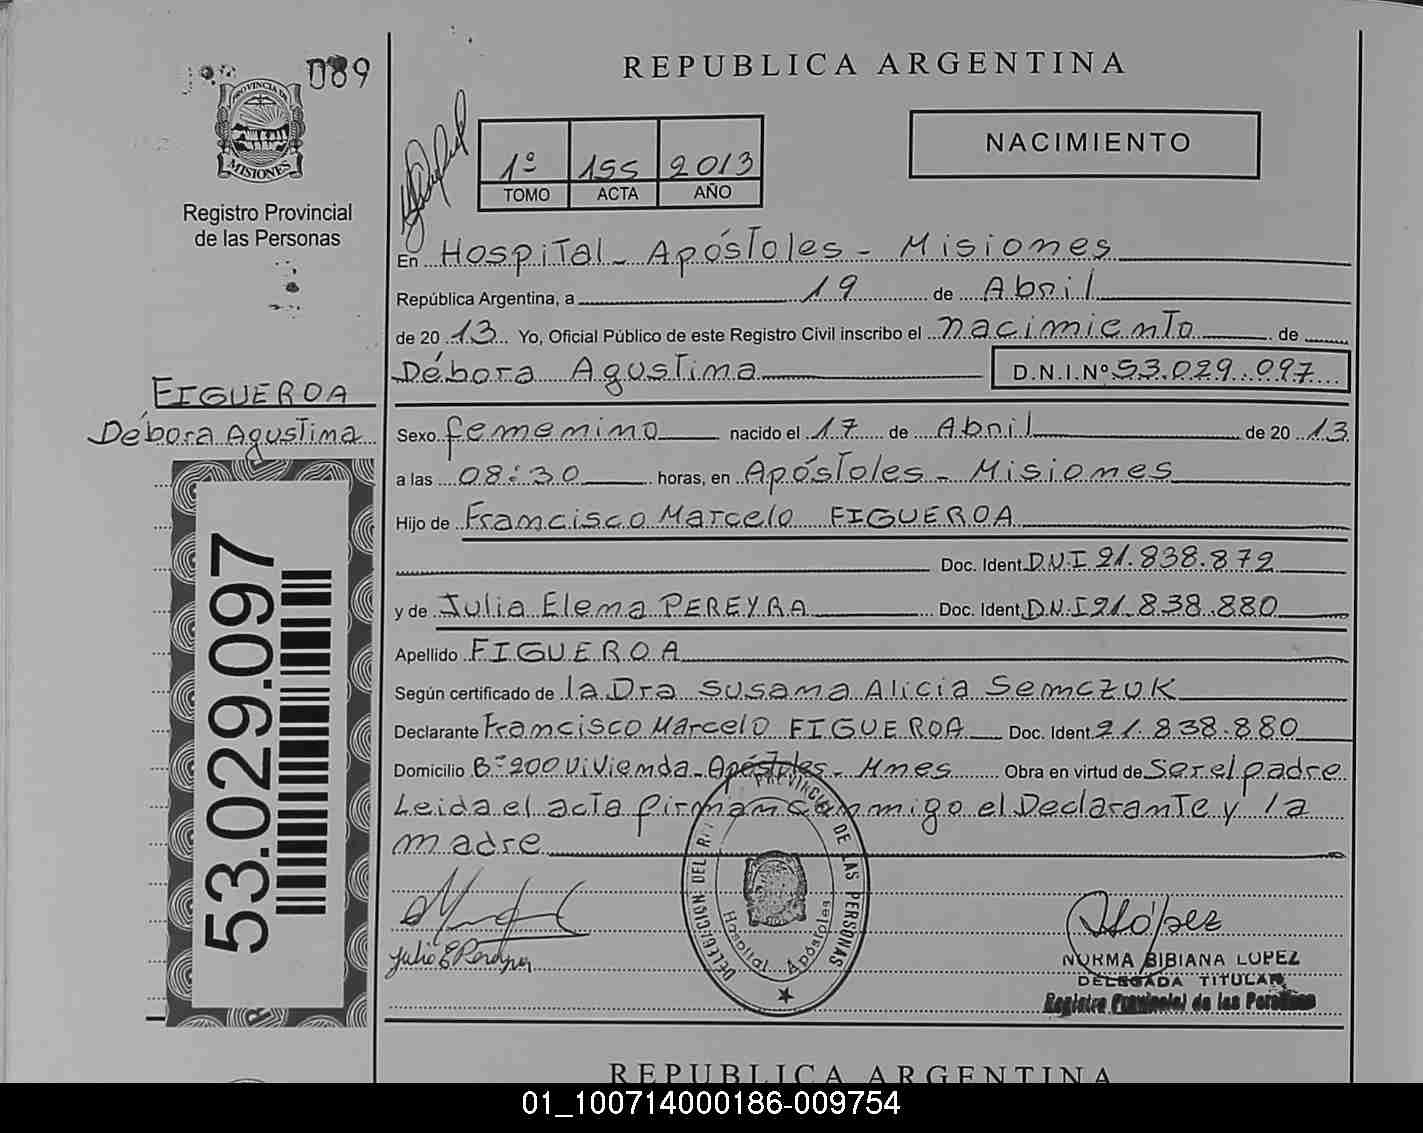 089
PROVINCIA DE
MISIONES
Registro Provincial
de las Personas
FIGUEROA
Débora Agustina
53.029.097
REPUBLICA ARGENTINA
NACIMIENTO
1º 155 2013
TOMO ACTA AÑO
En Hospital - Apóstoles - Misiones
República Argentina, a 19 de Abril
de 2013 Yo, Oficial Público de este Registro Civil inscribo el nacimiento de
Débora Agustina D.N.I.Nº 53.029.097
Sexo femenino nacido el 17 de Abril de 2013
a las 08:30 horas, en Apóstoles - Misiones
Hijo de Francisco Marcelo FIGUEROA
Doc. Ident. D.N.I 21.838.872
y de Julia Elena PEREYRA Doc. Ident. D.N.I 21.838.880
Apellido FIGUEROA
Según certificado de la Dra Susana Alicia Semczuk
Declarante Francisco Marcelo FIGUEROA Doc. Ident 21.838.880
Domicilio Bº 200 Vivienda - Apóstoles - Mnes Obra en virtud de Ser el padre
Leida el acta firman conmigo el Declarante y la
madre
DELEGACION DEL R.P. PROVINCIAL DE LAS PERSONAS
Hospital Apóstoles
López
NORMA BIBIANA LOPEZ
DELEGADA TITULAR
Registro Provincial de las Personas
REPUBLICA ARGENTINA
01_100714000186-009754